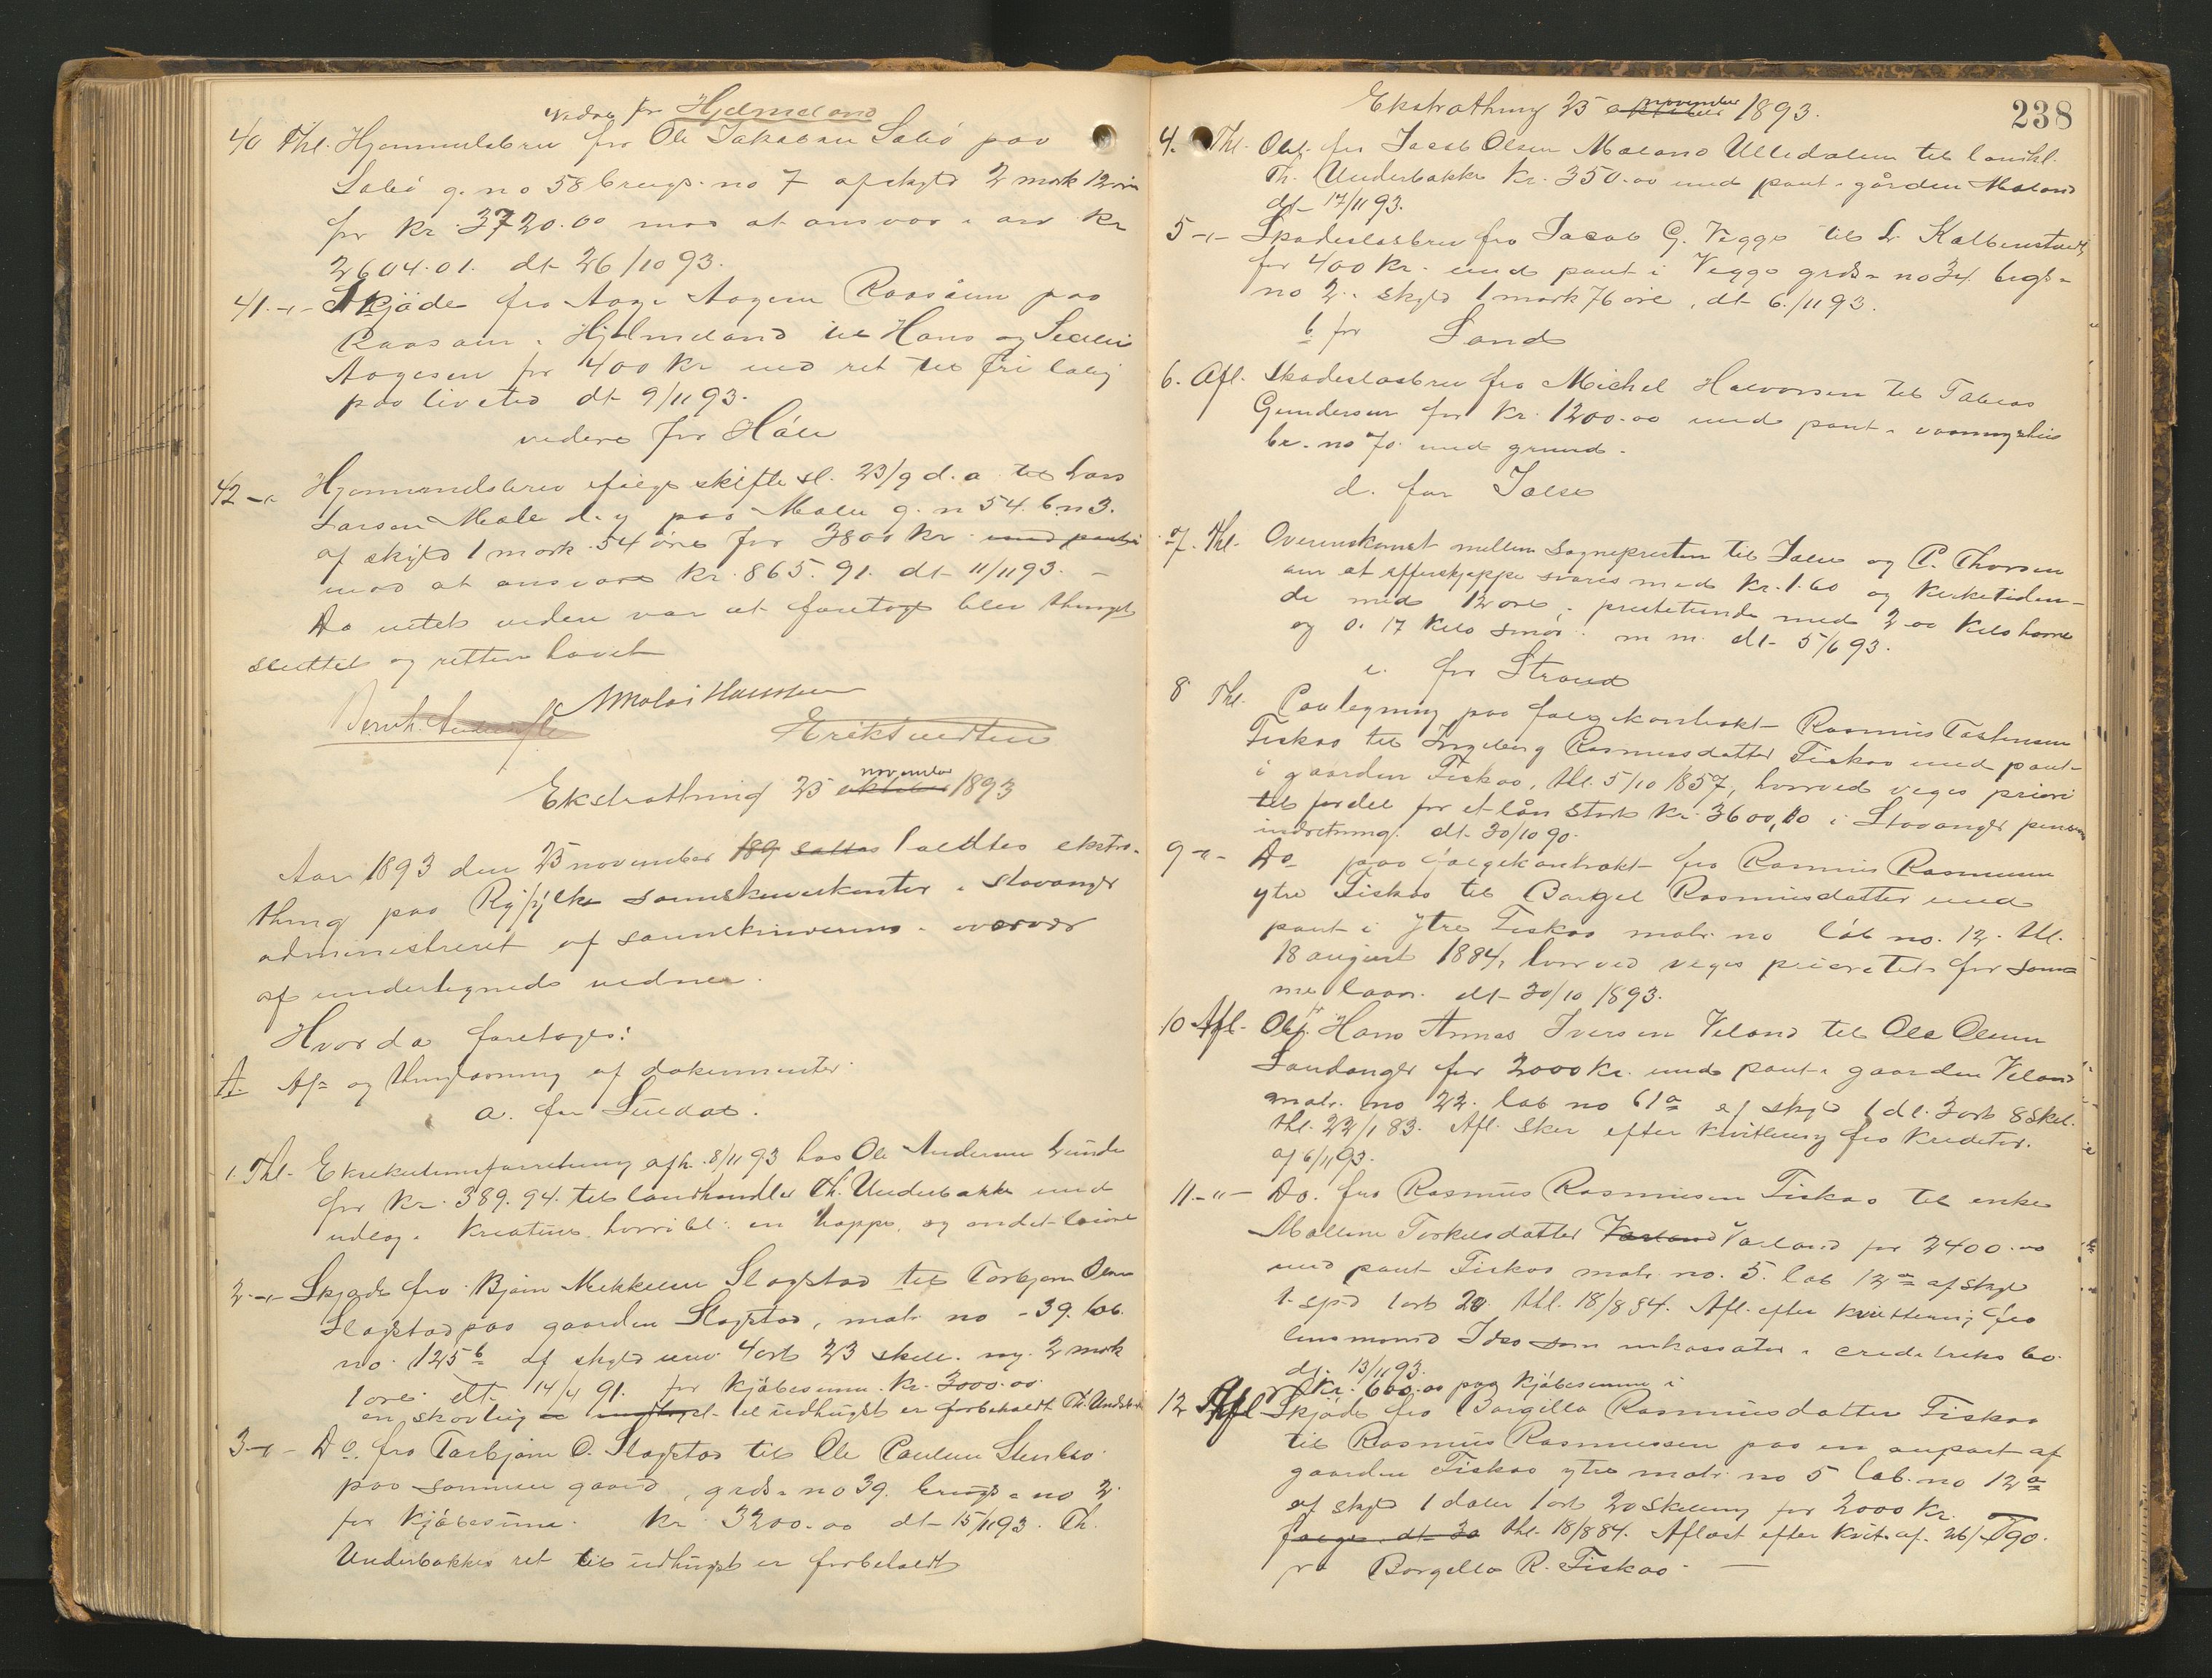 vedr for Hjelmeland
40 Thl. Hjemmelsbrev fra Ole Jakobsen Sabø paa
Sabø g. no 58 brugs. no 7 afskyld 2 mark 12 øre
for kr. 3720.00 mod at ansvar i arv kr
2604.01. dt 26/10 93.
41. -"- Skjøde fra Aage Aagesen Raasøen paa
Raasøen i Hjelmeland til Hans og
Aagesen for 400 kr med ret til fri bolig
paa livstid dt 9/11 93.
videre for Høle
42 -"- Hjemmelsbrev ifølge skifte sl. 23/9 d. a. til Lars
Larsen Mæle d. y. paa Mæle g. n 54. b. n 3.
af skyld 1 mark 54 øre for 3800 kr med pant i
mod at ansvare kr. 865.91. dt 11/11 93. -
Da intet videre var at foretage blev thinget
sluttet og retten hævet
Nikolai Hansen
Erik Svedsen
november
Ekstrathing 25 oktober 1893
Aar 1893 den 25 november 189 sattes holdtes ekstra-
thing paa Ryfylke sorenskriverkontor i Stavanger
administreret af sorenskriveren i overvær
af undertegnede vidner.
Hvorda foretoges:
A. Af- og thinglæsning af dokumenter
a. for Suldal.
1. Thl. Eksekutionsforretning afh. 8/11 93 hos Ole Andersen Lunde
for kr. 389.94 til landhandler Th. Underbakke med
udlæg i kreature, hvoribl. en hoppe, og andet løsøre
2. -"- Skjøde fra Bjørn Mikkelsen Slagstad til Torbjørn Olsen
Slagstad paa gaarden Slagstad, matr. no - 39. løb.
no. 125 b af skyld urev. 4 ort 23 skill. ny. 2 mark
1 øre dt. 14/4 91. for kjøbesum kr. 3000.00.
en skovteig til udhugst er forbeholdt Th. Underb.
3 -"- Do. fra Torbjørn O. Slagstad til Ole Paulsen Stenkso
paa sammen gaard, grds. no 39. brugs. no 2.
for kjøbesum. kr. 3200.00 dt 15/11 93. Th.
Underbakkes ret til udhugst er forbeholdt
238
november
Ekstrathing 25 oktober 1893.
4. Thl. Obl. fra Jacob Olsen Moland Ulledalen til landhl.
Th. Underbakke kr. 350.00 med pant i gården Moland
dt 17/11 93.
5 -"- Skadesløsbrev fra Jacob G. Vegge til L. Kolbenstvedt
for 400 kr. med pant i Vegge grds. no 34 brgs-
no 2. skyld 1 mark 76 øre, dt 6/11 93.
b for Sand
6. Afl. Skadesløsbrev fra Michel Halvorsen til Tobias
Gundersen for kr. 1200.00 med pant i vaaningshus
br. no 70 med grund.
d. for Jelse
7. Thl. Overenskomst mellem Sognepresten til Jelse og P. Thorsen
om at offerskjeppe svares med kr. 1.60 og kirketien-
de med 12 øre, prestetiende med 2.00 kilo havre
og 0.17 kilo smør m m. dt 5/6 93.
e. for Strand
8 Thl. Paategning paa føderkontrakt Rasmus Torstensen
Fiskaa til Ingeborg Rasmusdatter Fiskaa med pant
i gaarden Fiskaa, thl. 5/10 1857, hvorved veges priori
tet fordel for et lån stort kr. 3600,00 i Stavanger
indretning. dt 30/10 90.
9 -"- Do paa føderkontrakt fra Rasmus Rasmussen
ytre Fiskaa til Borgel Rasmusdatter med
pant i ytre Fiskaa matr. no løb no. 12. thl.
18 august 1884, hvorved veges prioritet for sam-
me laan. dt 30/10 1893.
10 Afl. Obl. Hans Arnas Iversen Veland til Ole Olsen
Sandanger for 2000 kr. med pant i gaarden Veland
matr. no 22. løb no 61a af skyld 1 dl. 3 ort 8 skil.
thl. 22/1 83. Afl. sker efter kvittering fra kreditor.
af 6/11 93.
11. -"- Do. fra Rasmus Rasmussen Fiskaa til enke
Mallene Torkelsdatter Varland Varland for 2400.00
med pant Fiskaa matr. no. 5. løb 12a af skyld
1 spd 1 ort 20. thl. 18/8 84. Afl. efter kvittering fra
lensmand Idsø som inkassator i creditricis bo
dt. 13/11 93.
kr. 600.00 paa kjøbesummen i
12 Afl Skjøde fra Borgella Rasmusdatter Fiskaa
til Rasmus Rasmussen paa en anpart af
gaarden Fiskaa ytre matr. no 5 løb. no 12a
af skyld 1 daler 1 ort 20 skilling for 2000 kr.
thl. 18/8 84. Aflæst efter kvit. af 26/ 90.
fra Borgella R. Fiskaa. -